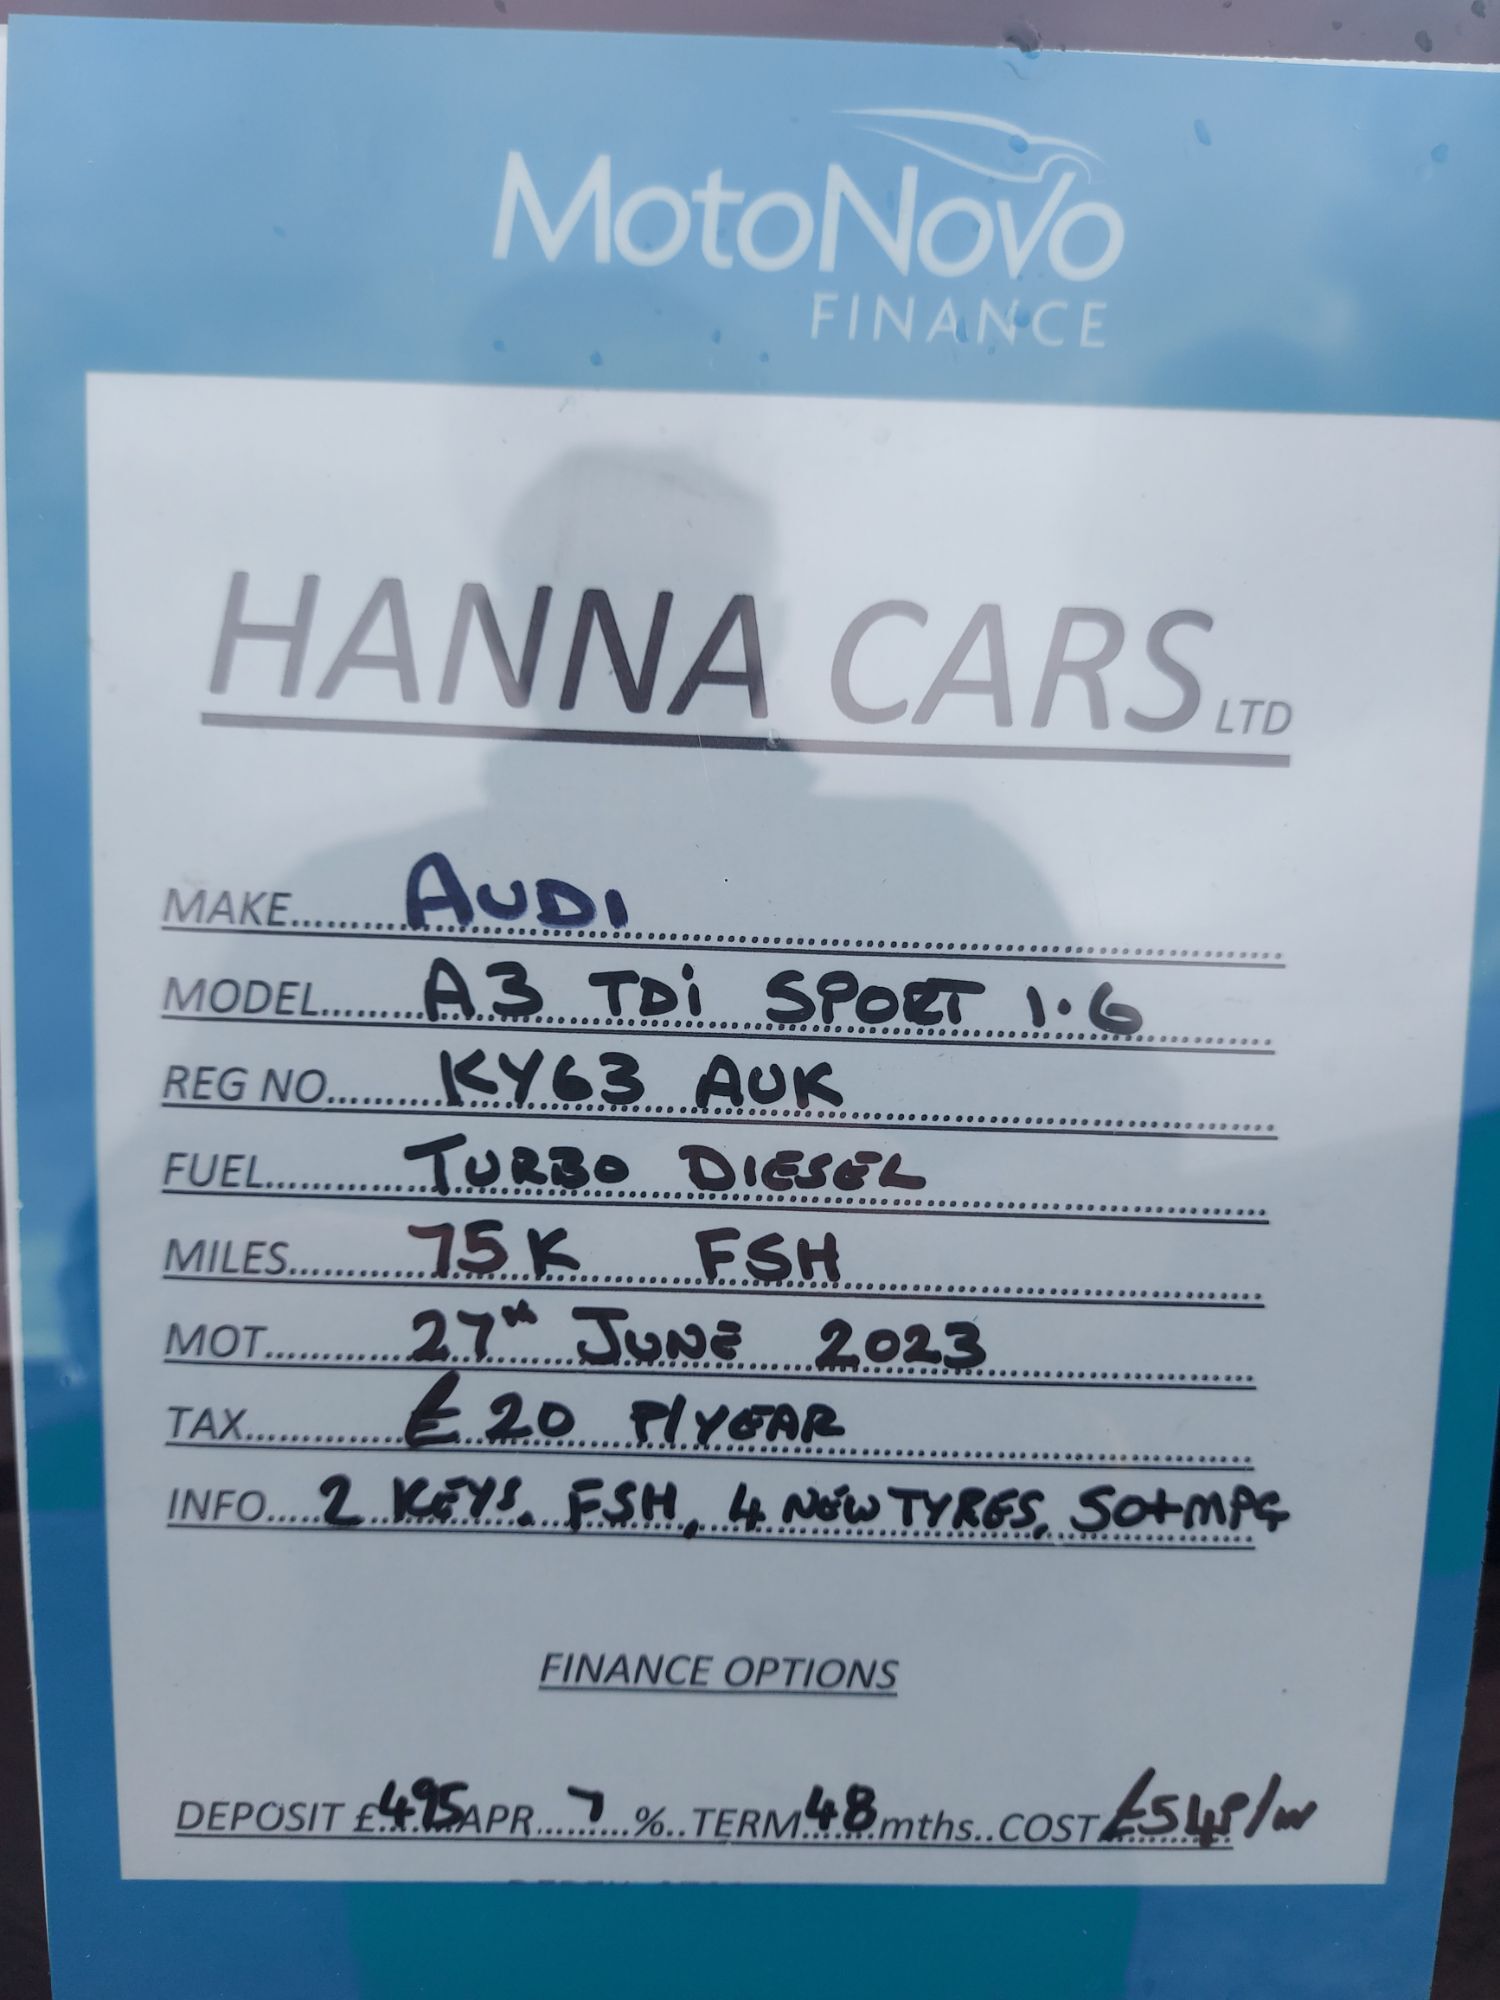 MotoNovo
FINANCE
HANNA CARS LTD
MAKE...... AUDI
MODEL...... A3 TDi SPORT 1.6
REG NO...... KY63 AUK
FUEL...... TURBO DIESEL
MILES...... 75K FSH
MOT...... 27th JUNE 2023
TAX...... £20 P/YEAR
INFO..... 2 KEYS. FSH, 4 NEW TYRES, 50+MPG
FINANCE OPTIONS
DEPOSIT £.495 APR... 7 ..%.. TERM.48.mths..COST £54P/W